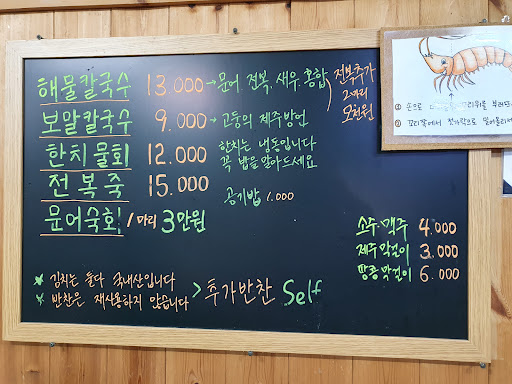 해물칼국수 13.000 → 문어 전복. 새우. 홍합
전복추가
2마리
오천원
보말칼국수 9.000 → 고둥의 제주방언
한치물회 12.000 한치는 냉동입니다
꼭 밥을 말아드세요
전복죽 15.000
공기밥 1.000
문어숙회 1마리 3만원
소주.맥주 4.000
제주막걸이 3.000
땅콩막걸이 6.000
김치는 둘다 국내산입니다
반찬은 재사용하지 않습니다 > 추가반찬 Self
① 손으로
② 꼬리쪽에서 젓가락으로